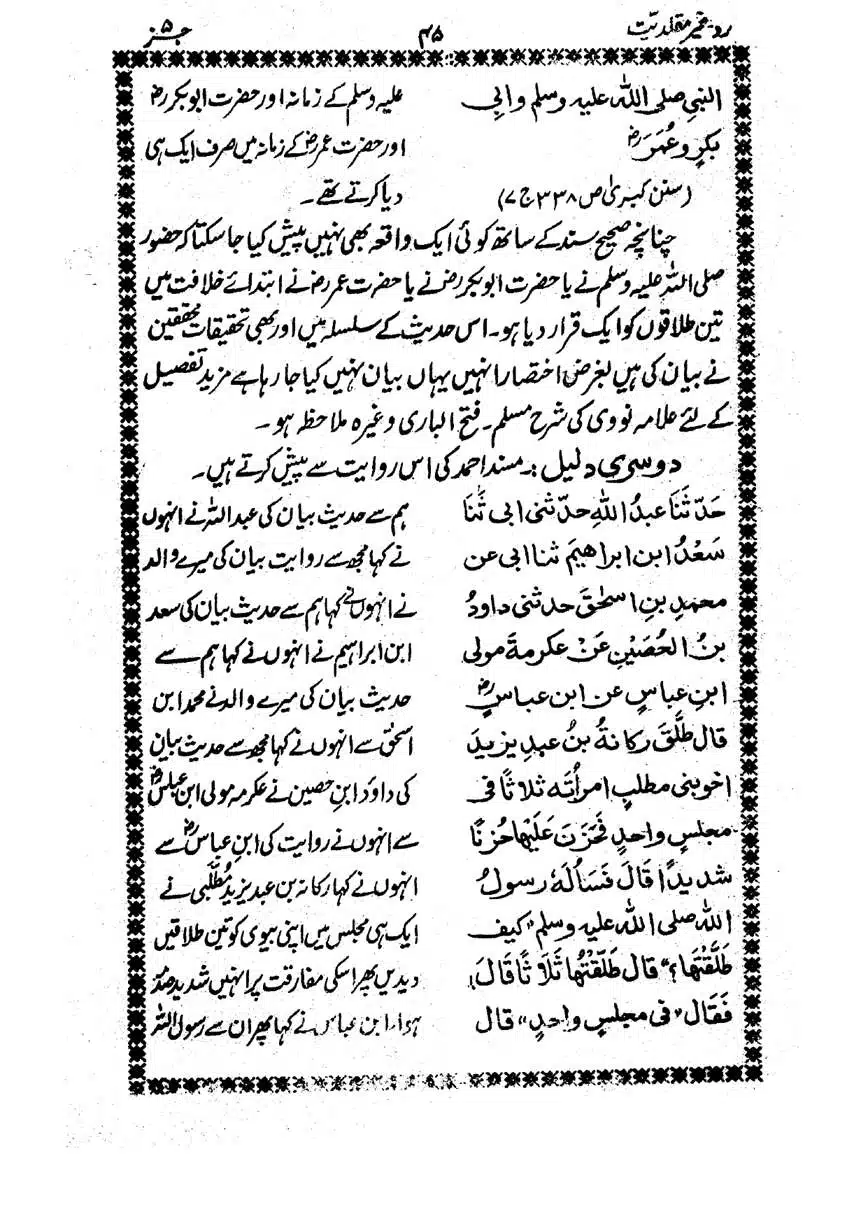 رد غیر مقلدیّت ۴۵ جز ۵
النبیِ صلی اللہ علیہ وسلم وابی
بکرٍ وعُمَرَ رض
(سنن کبریٰ ص ۳۳۸ ج ۷)
علیہ وسلم کے زمانہ اور حضرت ابوبکر رض
اور حضرت عمر رض کے زمانہ میں صرف ایک ہی
دیا کرتے تھے۔
چنانچہ صحیح سند کے ساتھ کوئی ایک واقعہ بھی نہیں پیش کیا جا سکتا کہ حضور
صلی اللہ علیہ وسلم نے یا حضرت ابوبکر رض نے یا حضرت عمر رض نے ابتدائے خلافت میں
تین طلاقوں کو ایک قرار دیا ہو۔ اس حدیث کے سلسلہ میں اور بھی تحقیقات محققین
نے بیان کی ہیں بغرض اختصار انہیں یہاں بیان نہیں کیا جا رہا ہے مزید تفصیل
کے لئے علامہ نووی کی شرح مسلم۔ فتح الباری وغیرہ ملاحظہ ہو۔
دوسری دلیل :۔ مسند احمد کی اس روایت سے پیش کرتے ہیں۔
حَدّثَنَا عبدُ اللہِ حدّثنی ابی ثَنَا
سَعْدُ ابن ابراھیمَ ثنا ابی عن
محمدِ بنِ اسحٰقَ حدثنی داودُ
بنُ الحُصَیْنِ عَنْ عکرمۃَ مولی
ابنِ عباسٍ عن ابن عباسٍ رض
قال طلَّقَ رکانۃُ بنُ عبدِ یزیدَ
اخوبنی مطلبٍ امرأتَہ ثلاثًا فی
مجلسٍ واحدٍ فحَزِنَ عَلَیْھا حُزنًا
شدیدًا قَالَ فَسَألَہٗ رسولُ
اللہِ صلی اللہ علیہ وسلم "کیف
طَلَّقْتَھَا؟" قال طَلَّقْتُھا ثَلَاثًا قَالَ
فَقَالَ "فی مجلسٍ واحدٍ" قال
ہم سے حدیث بیان کی عبداللہ نے انہوں
نے کہا مجھ سے روایت بیان کی میرے والد
نے انہوں نے کہا ہم سے حدیث بیان کی سعد
ابن ابراہیم نے انہوں نے کہا ہم سے
حدیث بیان کی میرے والد نے محمد ابن
اسحٰق سے انہوں نے کہا مجھ سے حدیث بیان
کی داؤد ابنِ حصین نے عکرمہ مولی ابن عباس رض
سے انہوں نے روایت کی ابنِ عباس رض سے
انہوں نے کہا رکانہ بن عبد یزید مُطَّلبی نے
ایک ہی مجلس میں اپنی بیوی کو تین طلاقیں
دیدیں پھر اسکی مفارقت پر انہیں شدید صدمہ
ہوا، ابن عباس نے کہا پھر ان سے رسول اللہ